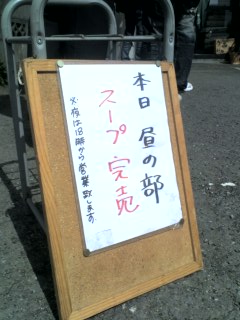 本日 昼の部
スープ 完売
※夜は18時から営業致します